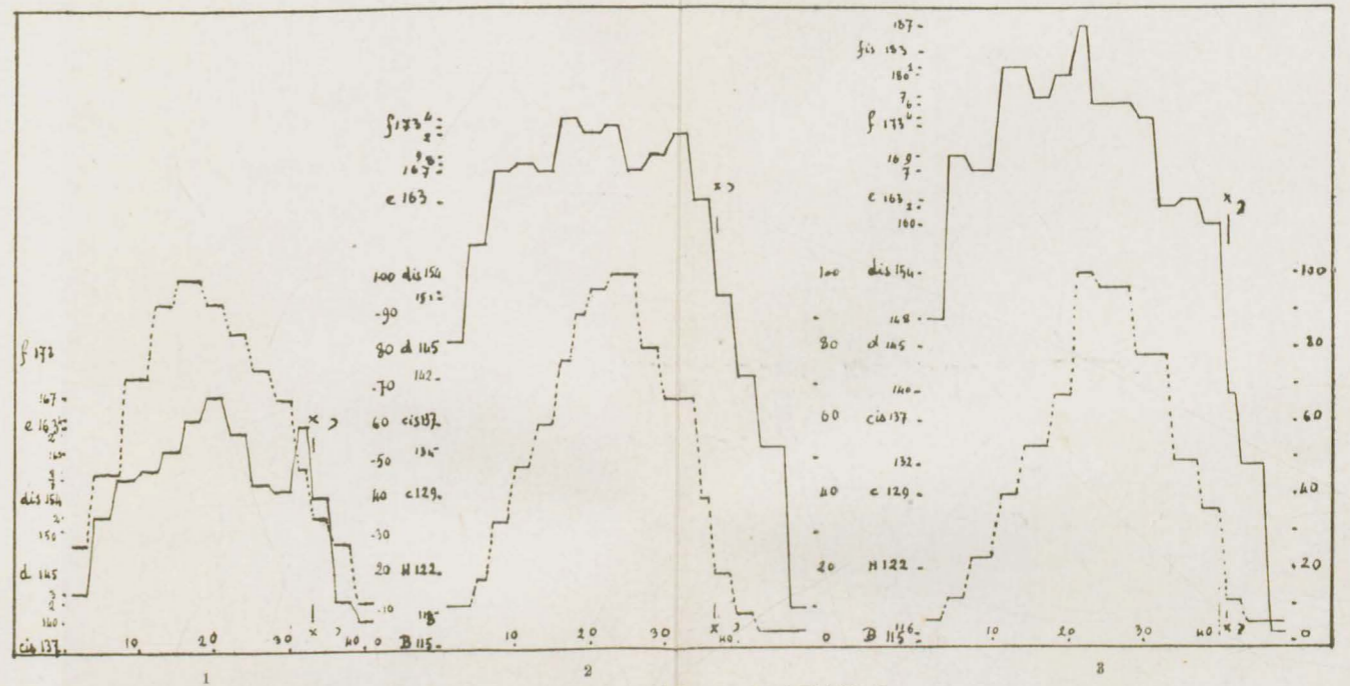 f 173
167
e 163
dis 154
150
d 145
140
cis 137
10
20
30
40
x
x
1
f 173
2
167
e 163
100 dis 154
-90
80 d 145
142
-70
60 cis 137
-50
134
40 c 129
-30
20 H 122
-10
118
0 B 115
10
20
30
40
x
x
2
187
fis 183
180
f 173
169
7
e 163
160
100 dis 154
148
80 d 145
140
60 cis 137
132
40 c 129
20 H 122
116
0 B 115
10
20
30
40
x
x
100
80
60
40
20
0
3